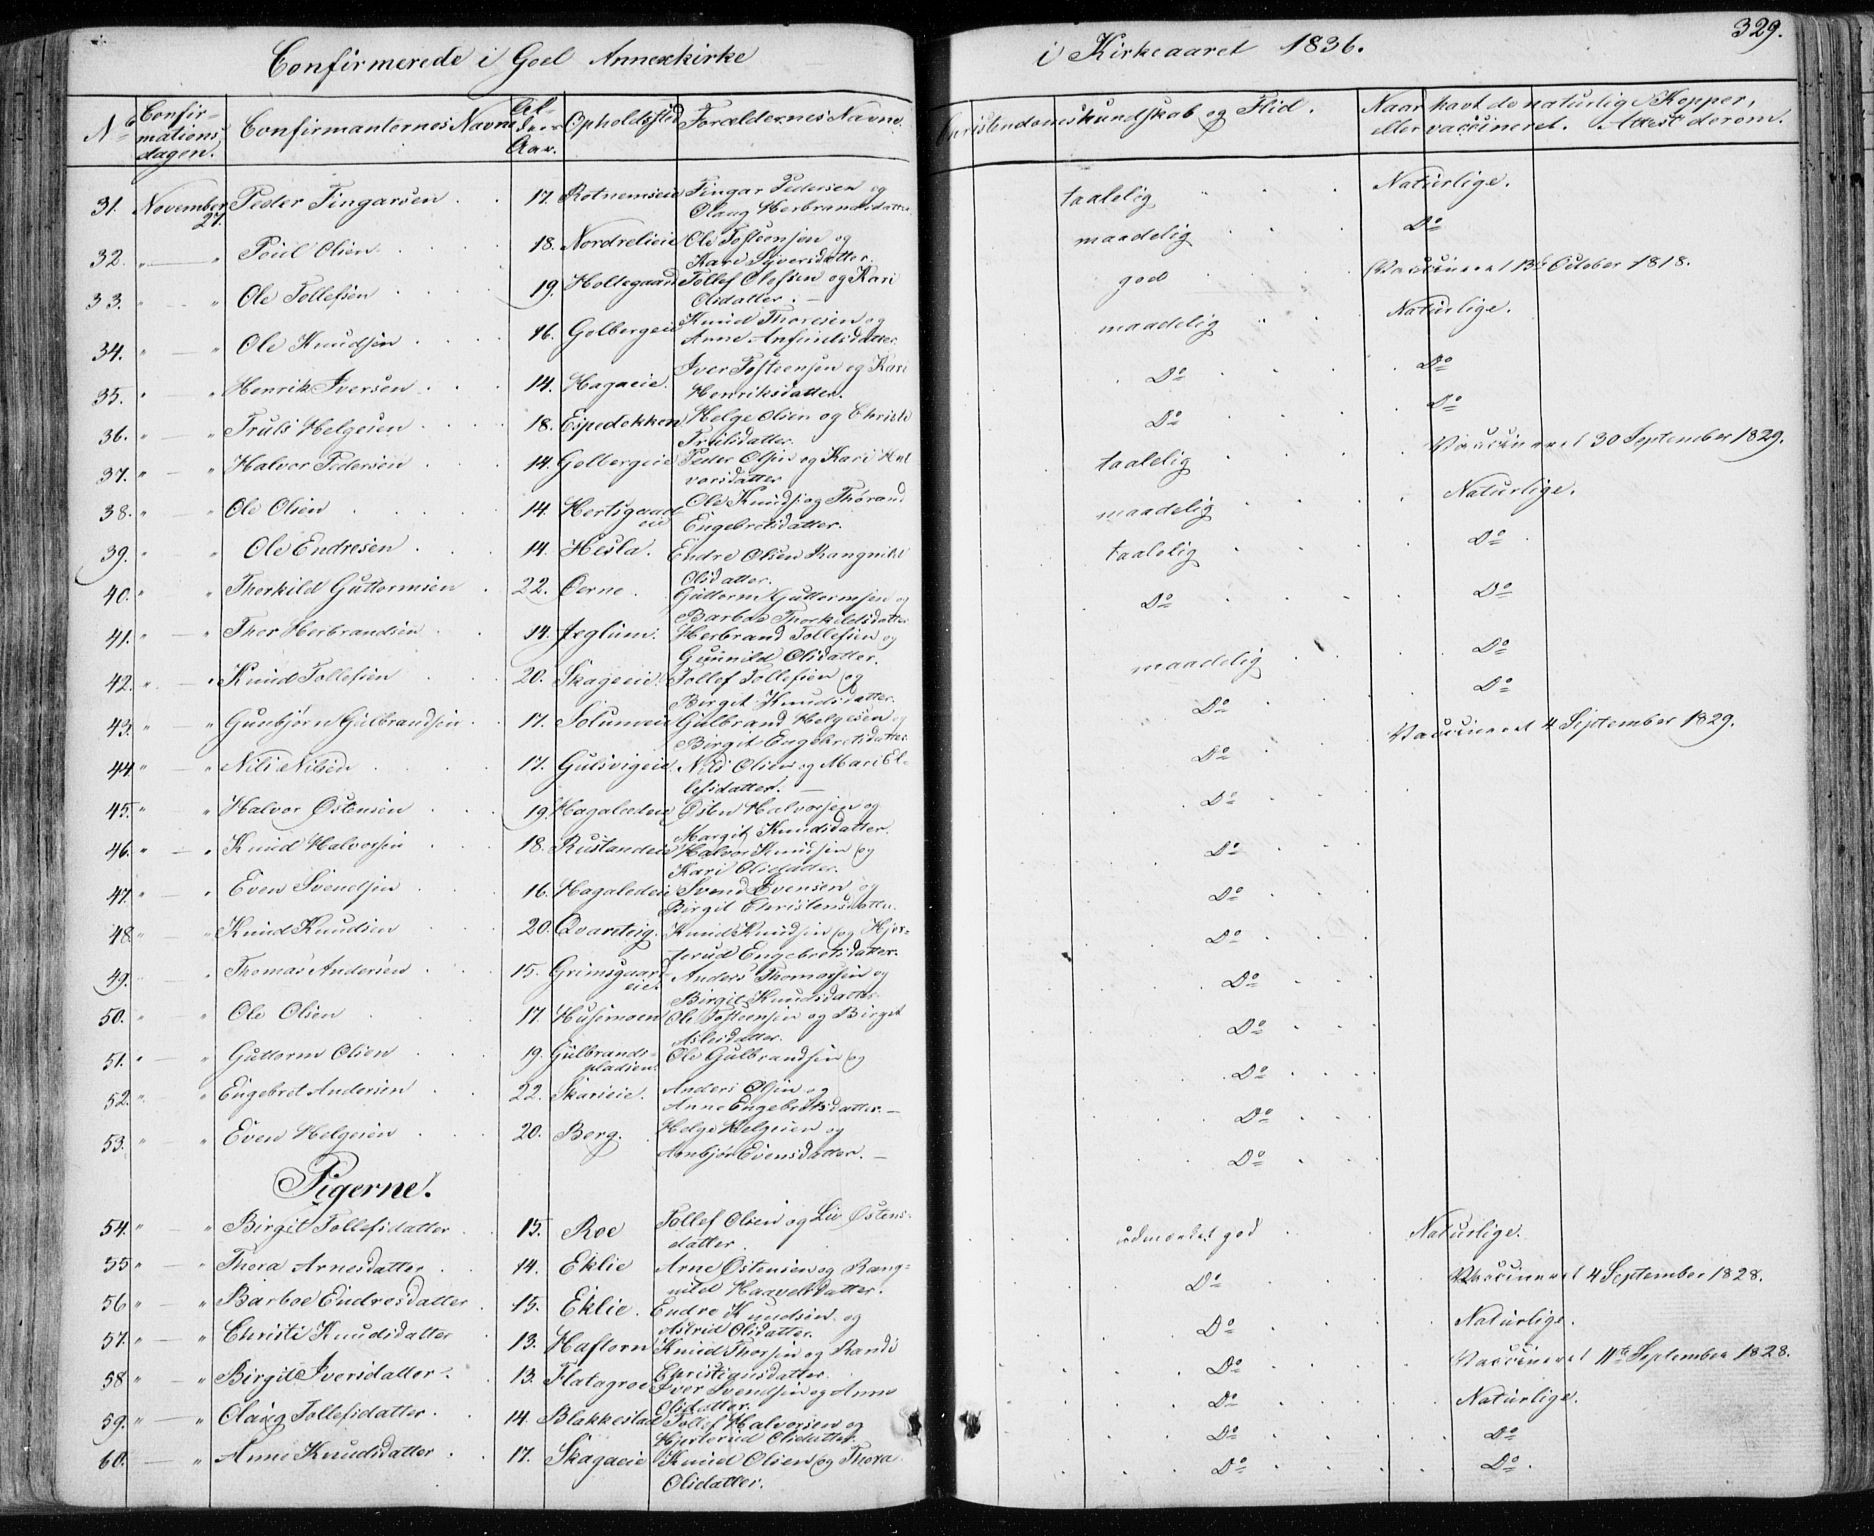 329.
Confirmerede i Goel Annexkirke i Kirkeaaret 1836.
No Confirmations dagen. Confirmanternes Navne Opholdssted Forældrenes Navne. Christendomskundskab og Flid. Naar havt de naturlige Kopper,
eller vaccineret. Attest derom.
31. November 27. Peder Fingarsen 17. Rotnemseie Fingar Pedersen og taalelig Naturlige.
Olaug Herbrandsdatter
32. " " Poul Olsen 18. Nordrelieie Ole Tosteensen og maadelig Do
Kari Syversdatter.
33. " " Ole Tollefsen 19. Holtegaard Tollef Olefsen og Kari god Vaccineret October 1818.
Olsdatter.
34. " " Ole Knudsen 16. Golbergeie Knud Thoresen og maadelig Naturlige.
Anne Anfindsdatter
35. " " Henrik Iversen 14. Hagaeie. Iver Tosteensen og Kari Do Do
Henriksdatter.
36. " " Truls Helgesen 18. Espedokken Helge Olsen og Christi Do Do
Trulsdatter.
37. " " Halvor Pedersen 14. Golbergeie Peder Olsen og Kari Hal taalelig Vaccineret 30 September 1829.
vorsdatter
38. " " Ole Olsen 14. Hertsgaard eie Ole Knuds. og Thorand maadelig Naturlige.
Engebretsdatter.
39. " " Ole Endresen 14. Hesla. Endre Olsen Rangnild taalelig Do
Olsdatter.
40. " " Thorkild Guttormsen 22. Oerne. Guttorm Guttormsen og Do Do
Barboe Thorkildsdatter
41. " " Thor Herbrandsen 14. Jeglum. Herbrand Tollefsen og maadelig Do
Gunnild Olsdatter.
42. " " Knud Tollefsen 20. Skageeie. Tollef Tollefsen og Do Do
Birgit Knudsdatter.
43. " " Gunbjørn Gulbrandsen 17. Solumeie Gulbrand Helgesen og Do Vaccineret 4 September 1829.
Birgit Engebretsdatter.
44. " " Nils Nilsen 17. Gulsvigeie Nils Olsen og Mari El-
lefsdatter. Do
45. " " Halvor Østensen 19. Hagaledeie Østen Halvorsen og
Margit Knudsdatter. Do
46. " " Knud Halvorsen 18. Rustandeie Halvor Knudsen og
Kari Olsdatter. Do
47. " " Even Svendsen 16. Hagaledeie Svend Evensen og
Birgit Christensdatter. Do
48. " " Knud Knudsen 20. Qvarteig. Knud Knudsen og Hjer-
terud Engebretsdatter. Do
49. " " Thomas Andersen 15. Grimsgaard eie. Anders Thomassen og
Birgit Knudsdatter. Do
50. " " Ole Olsen 17. Husemoen Ole Tosteensen og Birgit
Aslesdatter. Do
51. " " Guttorm Olsen 19. Gulbrands- pladsen. Ole Gulbrandsen og Do
52. " " Engebret Andersen 22. Skarseie. Anders Olsen og
Anne Engebretsdatter. Do
53. " " Even Helgesen 20. Berg. Helge Helgesen og
Arnbjør Evensdatter. Do
Pigerne.
54. " " Birgit Tollefsdatter 15. Roe Tollef Olsen og Liv Østens- udmærket god Naturlige.
datter.
55 " " Thora Arnesdatter 14. Eklie Arne Østensen og Rang- Do Vaccineret 4 September 1828.
nild Haavelsdatter.
56 " " Barboe Endresdatter 15. Eklie. Endre Knudsen og Do Naturlige.
Astrid Olsdatter.
57. " " Christi Knudsdatter 13. Haftorn Knud Thorsen og Randi Do Vaccineret 11te September 1828.
Christiansdatter.
58 " " Birgit Iversdatter 13. Flatagroe Iver Svendsen og Anne Do Naturlige.
Olsdatter.
59. " " Olaug Tollefsdatter. 14. Blakkestad Tollef Halvorsen og Do Do
Hjerterud Olsdatter.
60. " Anne Knudsdatter 17. Skagaeie Knud Olsen og Thora Do Do.
Olsdatter.